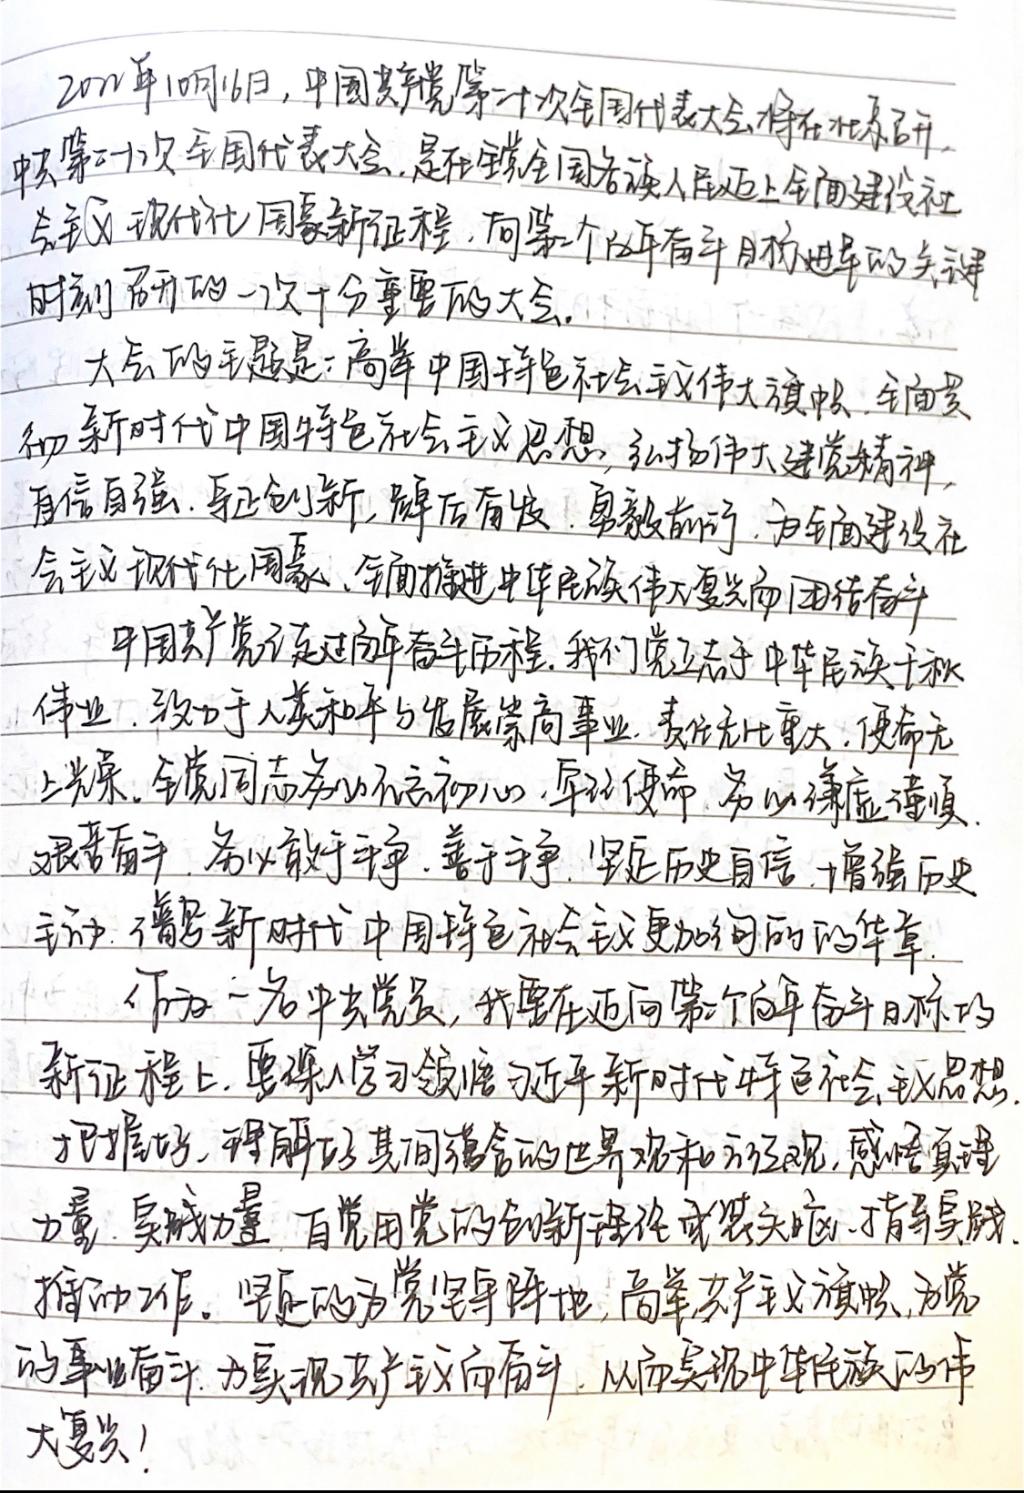 2022年10月16日，中国共产党第二十次全国代表大会将在北京召开，
中共第二十次全国代表大会，是在全党全国各族人民迈上全面建设社
会主义现代化国家新征程，向第二个百年奋斗目标进军的关键
时刻召开的一次十分重要的大会。
大会的主题是：高举中国特色社会主义伟大旗帜，全面贯
彻新时代中国特色社会主义思想，弘扬伟大建党精神，
自信自强、守正创新，踔厉奋发、勇毅前行，为全面建设社
会主义现代化国家、全面推进中华民族伟大复兴而团结奋斗
中国共产党已走过百年奋斗历程。我们党立志于中华民族千秋
伟业，致力于人类和平与发展崇高事业，责任无比重大，使命无
上光荣。全党同志务必不忘初心、牢记使命，务必谦虚谨慎、
艰苦奋斗，务必敢于斗争、善于斗争，坚定历史自信，增强历史
主动，谱写新时代中国特色社会主义更加绚丽的华章。
作为一名中共党员，我要在迈向第二个百年奋斗目标的
新征程上，要深入学习领悟习近平新时代特色社会主义思想，
把握好、理解好其间蕴含的世界观和方法观，感悟真理
力量、实践力量，自觉用党的创新理论武装头脑、指导实践、
推动工作。坚定的为党坚守阵地，高举共产主义旗帜，为党
的事业奋斗，为实现共产主义而奋斗，从而实现中华民族的伟
大复兴！